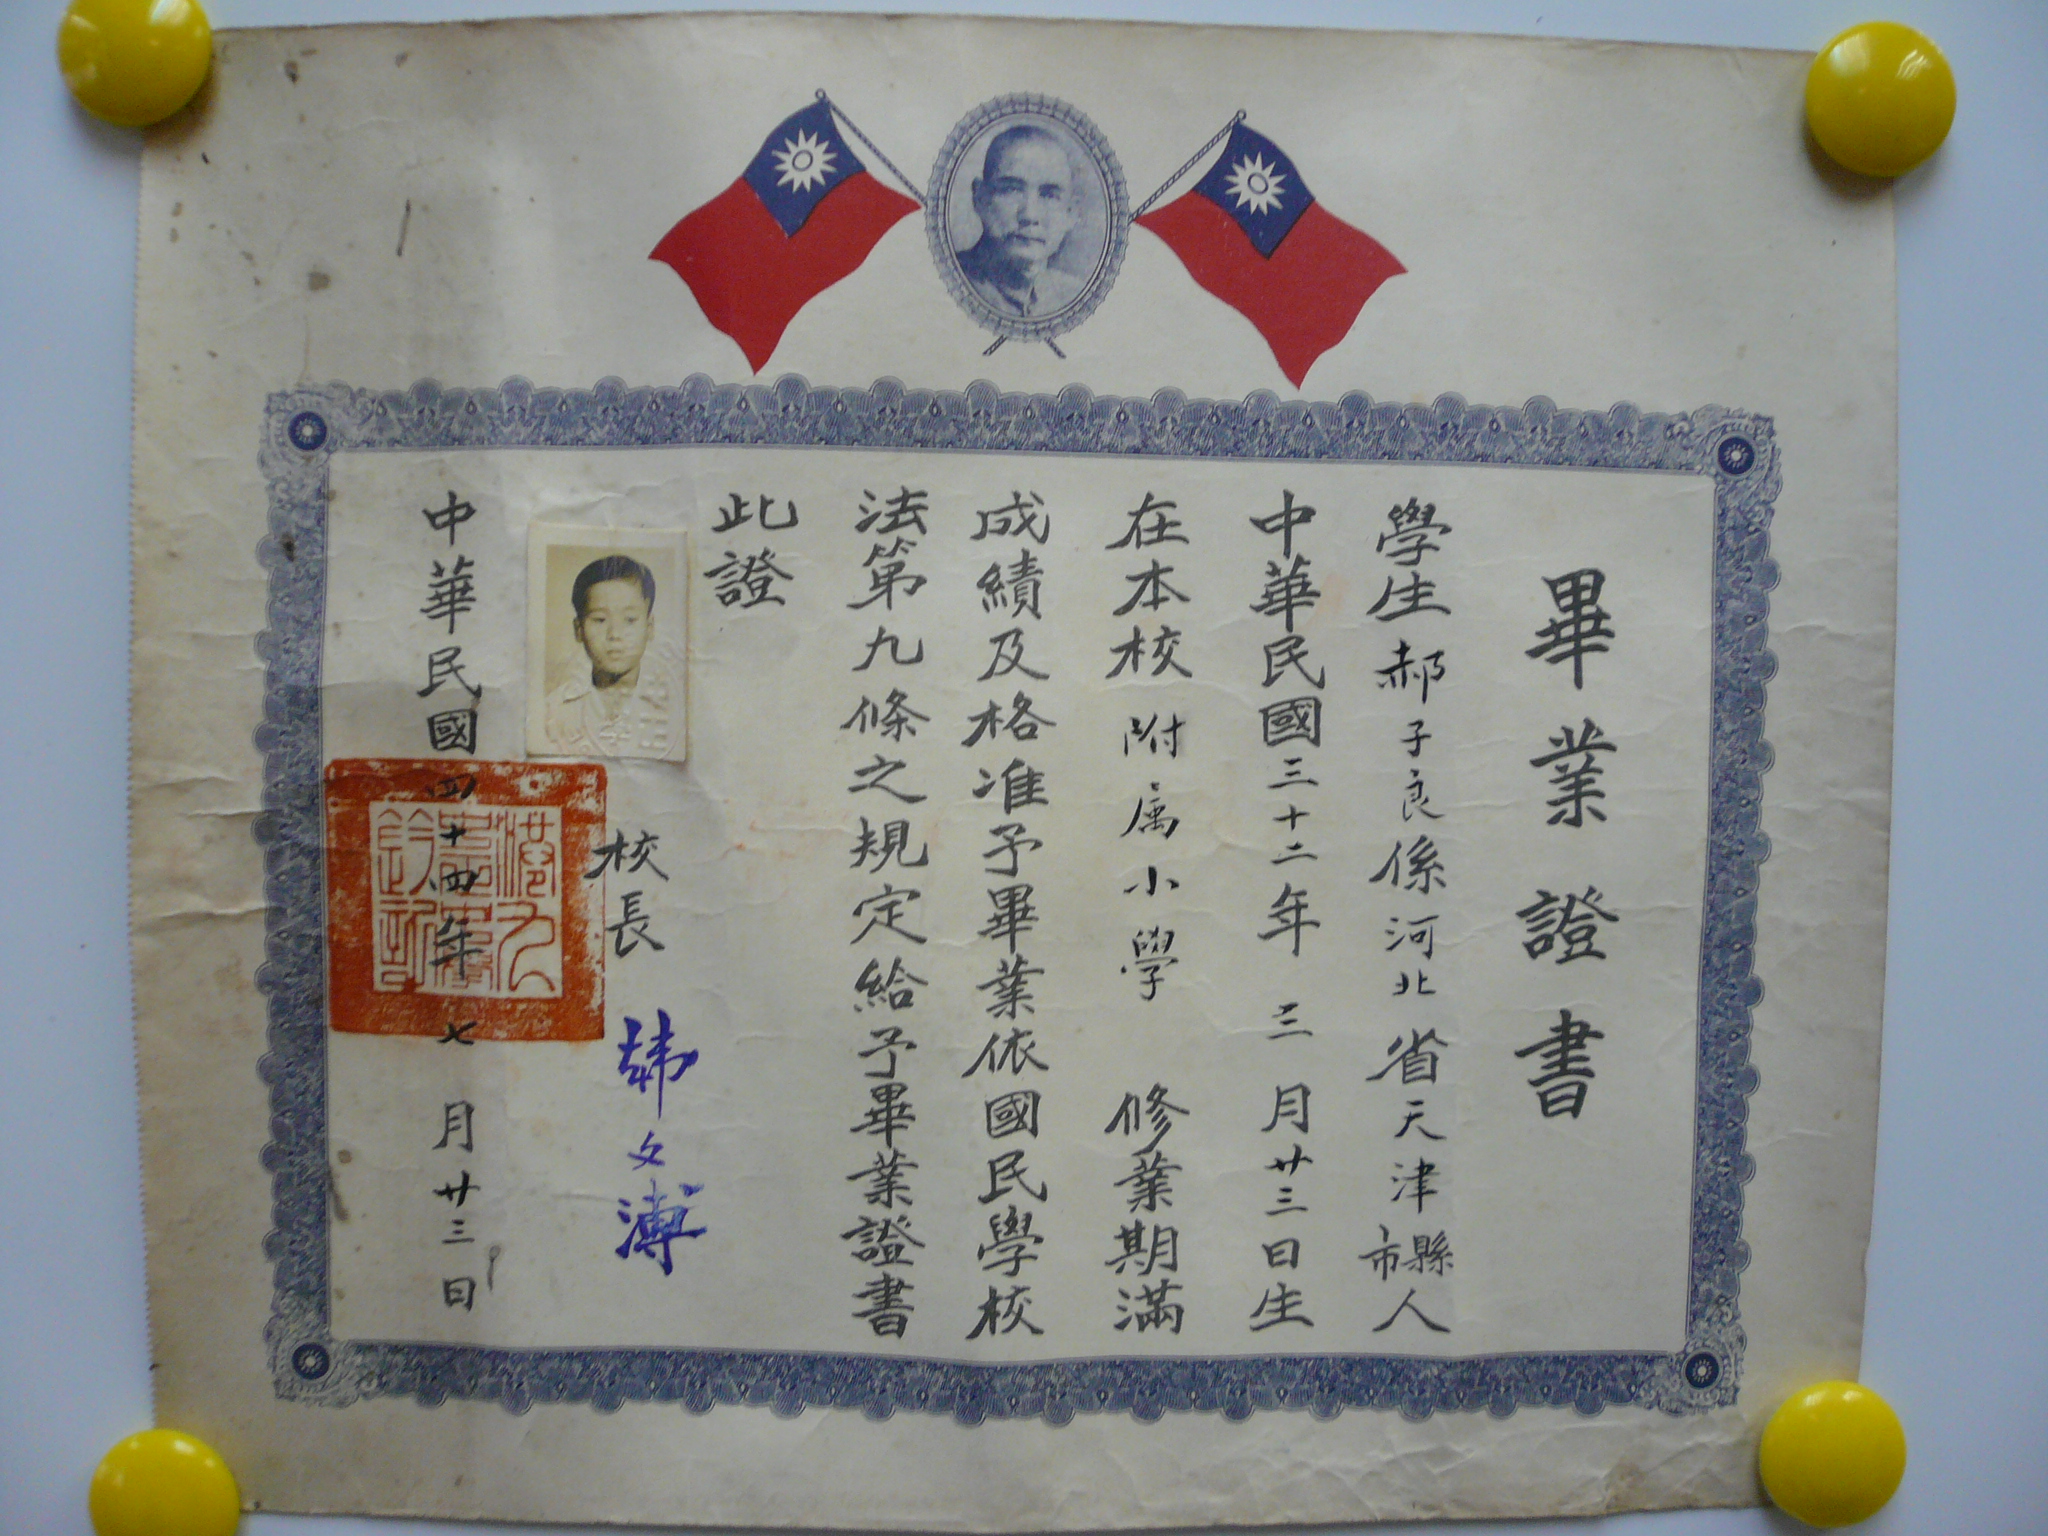 畢業證書
學生郝子良係河北省天津市縣人
中華民國三十二年三月廿三日生
在本校附屬小學修業期滿
成績及格准予畢業依國民學校
法第九條之規定給予畢業證書
此證
校長韓文溥
中華民國四十四年七月廿三日